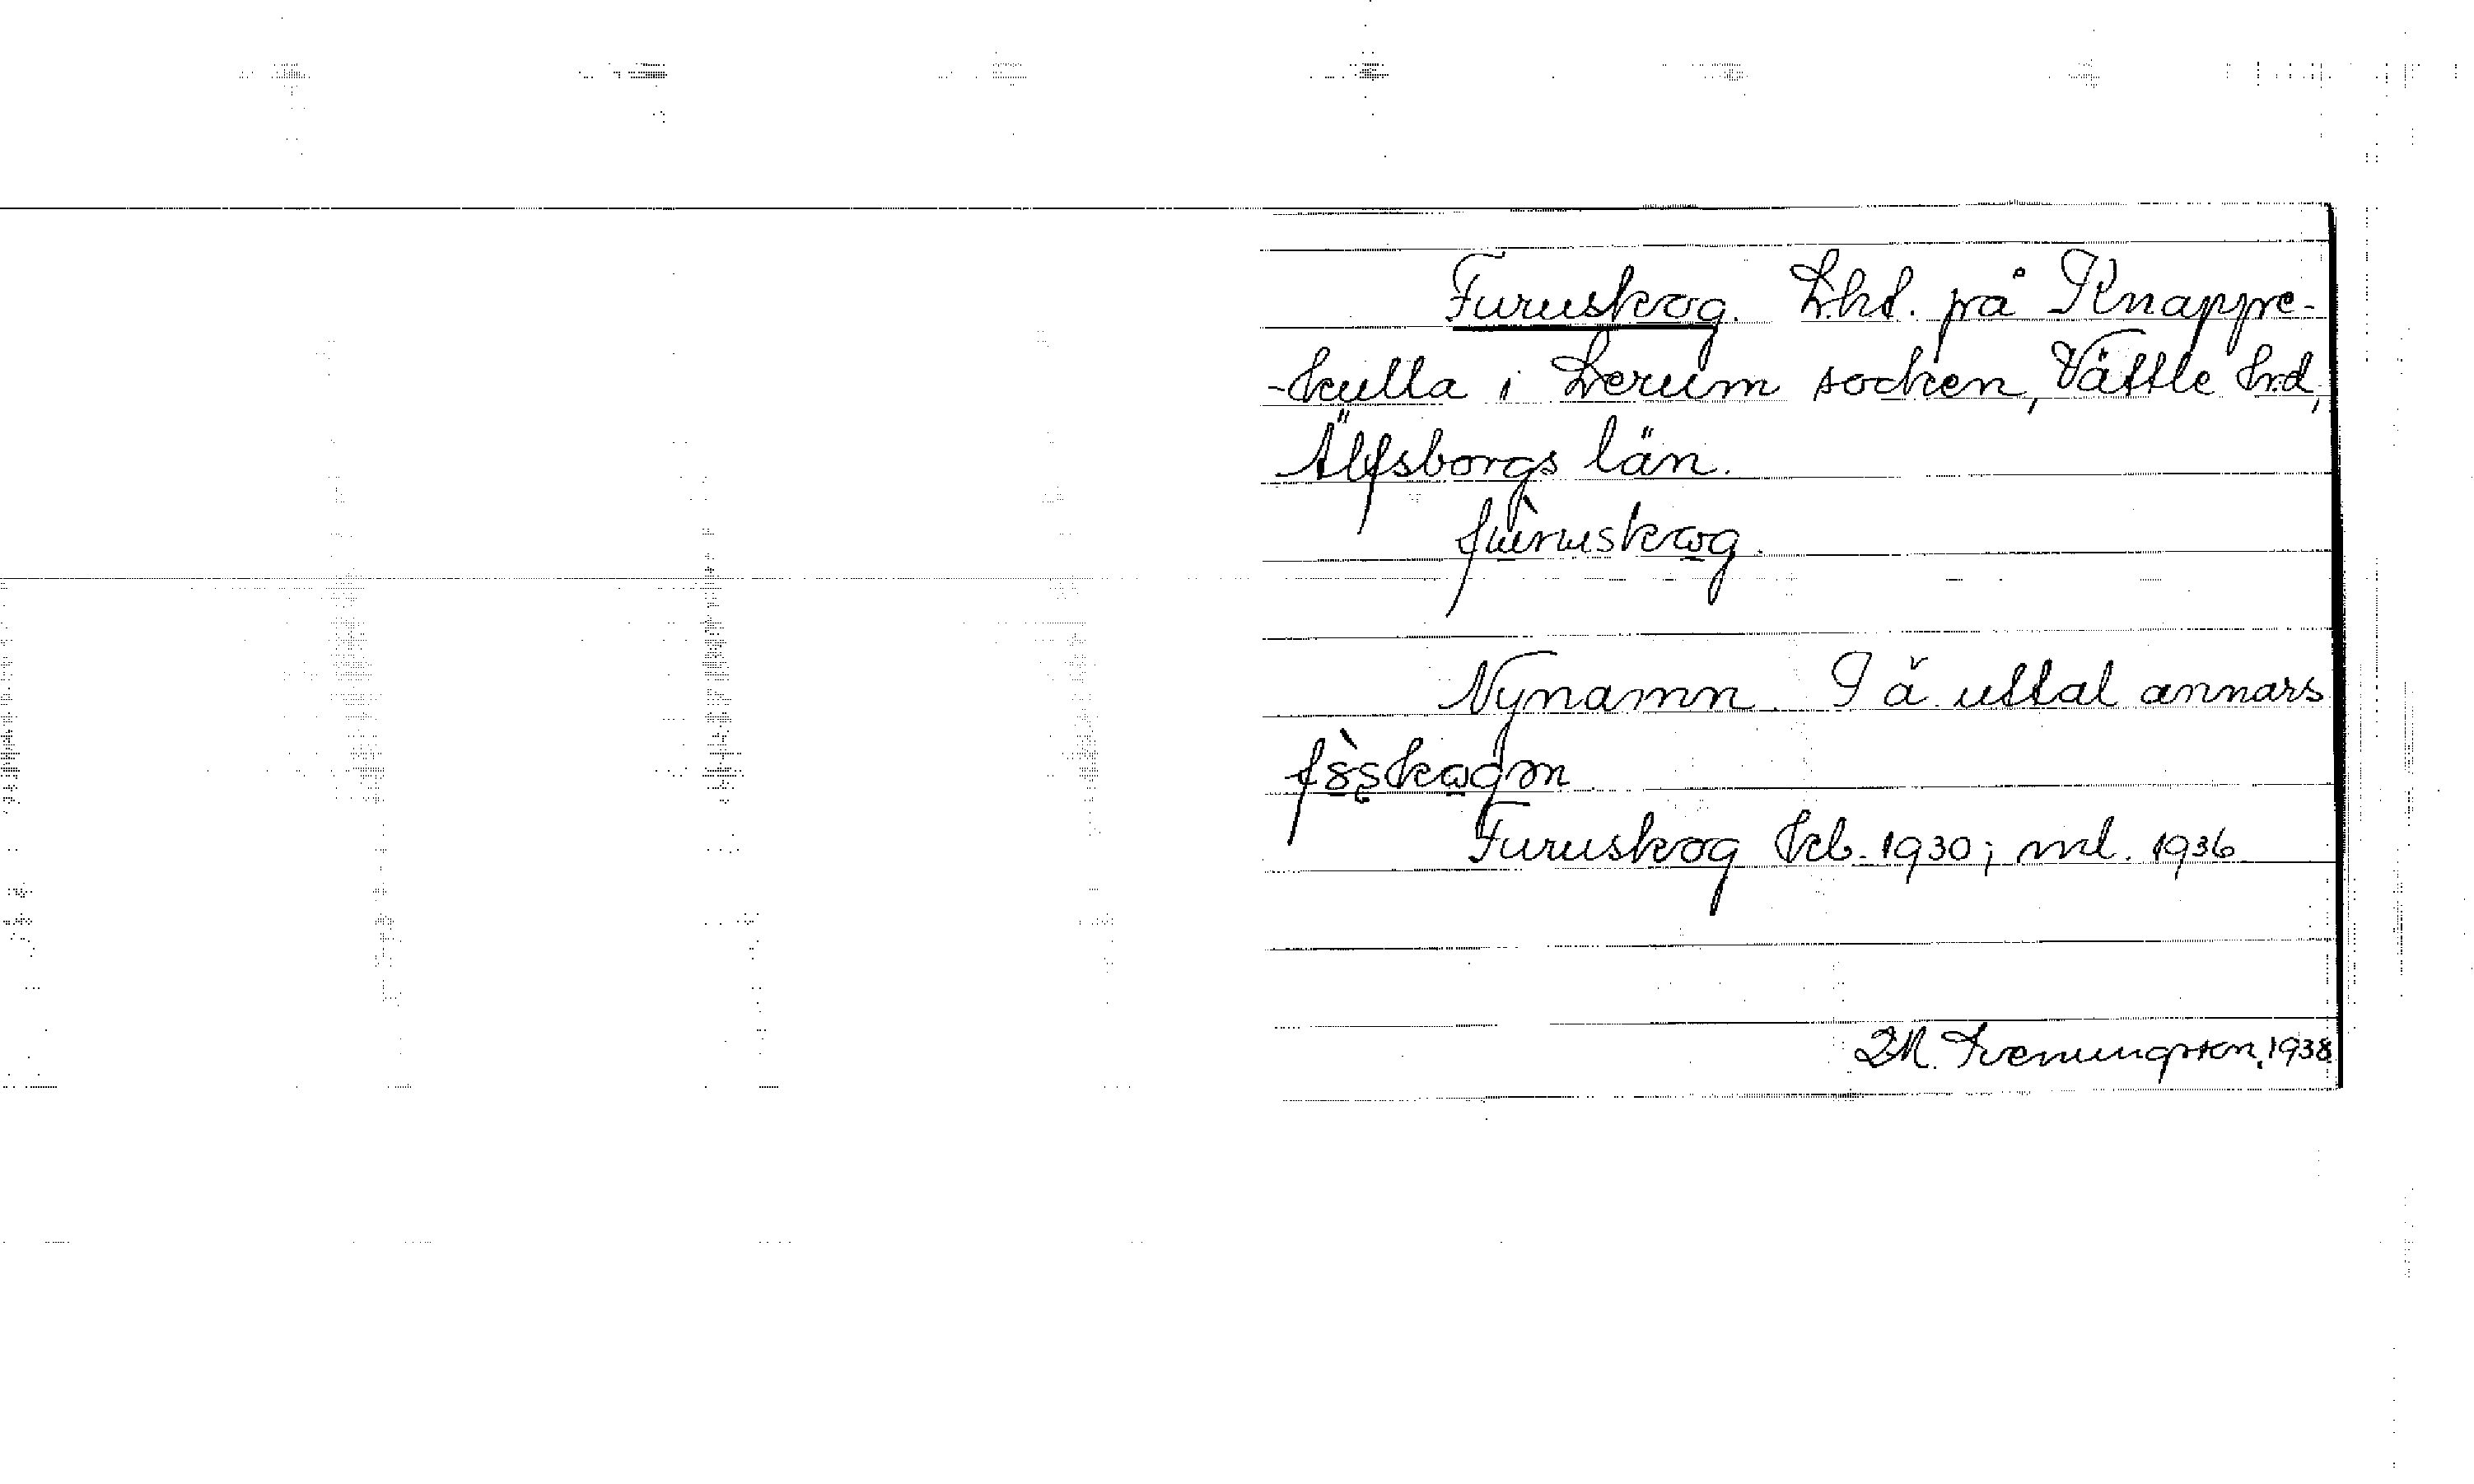 Furuskog. Lhd. på Knappe-
-kulla i Lerum socken, Vättle hrd,
Älfsborgs län.
fùruskog.
Nynamn. I ä. uttal annars
Furuskog kb. 1930; ml. 1936
1938